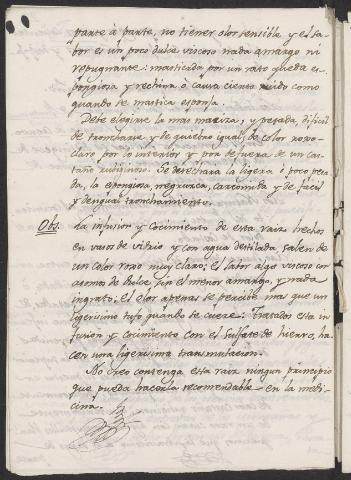 parte á parte, no tener olor sensible y el sa-
bor es un poco dulce viscoso nada amargo ni
repugnante: masticada por un rato queda es-
ponjosa y rechina ó causa cierto ruido como
quando se mastica esponja.
Debe elegirse la mas maziza, y pesada, dificil
de troncharse y de quiebro igual; de color roxo-
claro por lo interior y por de fuera de un cas-
taño rubiginoso. Se desechará la ligera ó poco pesa-
da, la esponjosa, negruzca, carcomida y de facil
y desigual tronchamiento.
Obs. La infusion y cocimiento de esta raiz hechos
en vasos de vidrio y con agua destilada salen de
un color roxo muy claro; el sabor algo viscoso con
asomos de dulce, sin el menor amargo, y nada
ingrato; el olor apenas se percibe mas que un
ligerisimo tufo quando se cuece: Tratados esta in-
fusion y cocimiento con el Sulfate de hierro, ha-
cen una ligerisima transmutacion.
No creo contenga esta raiz ningun principio
que pueda hacerla recomendable en la medi-
cina.